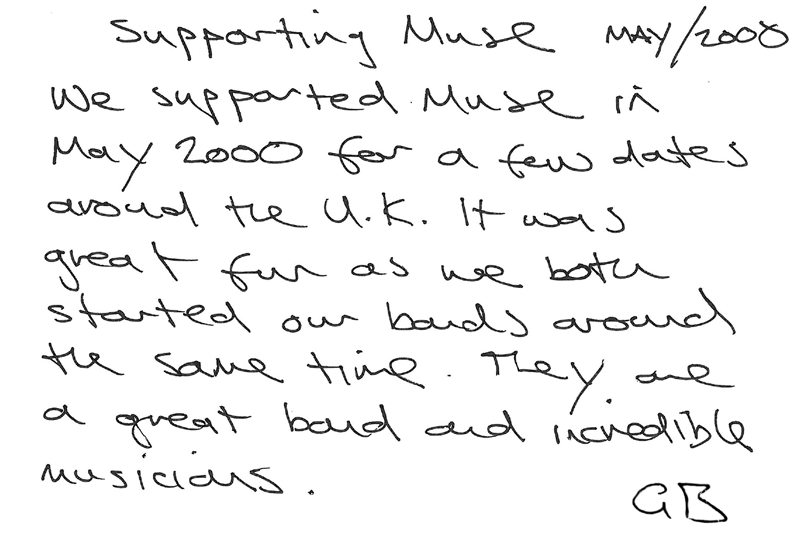 Supporting Muse MAY/2000
We supported Muse in
May 2000 for a few dates
around the U.K. It was
great fun as we both
started our bands around
the same time. They are
a great band and incredible
musicians.
GB